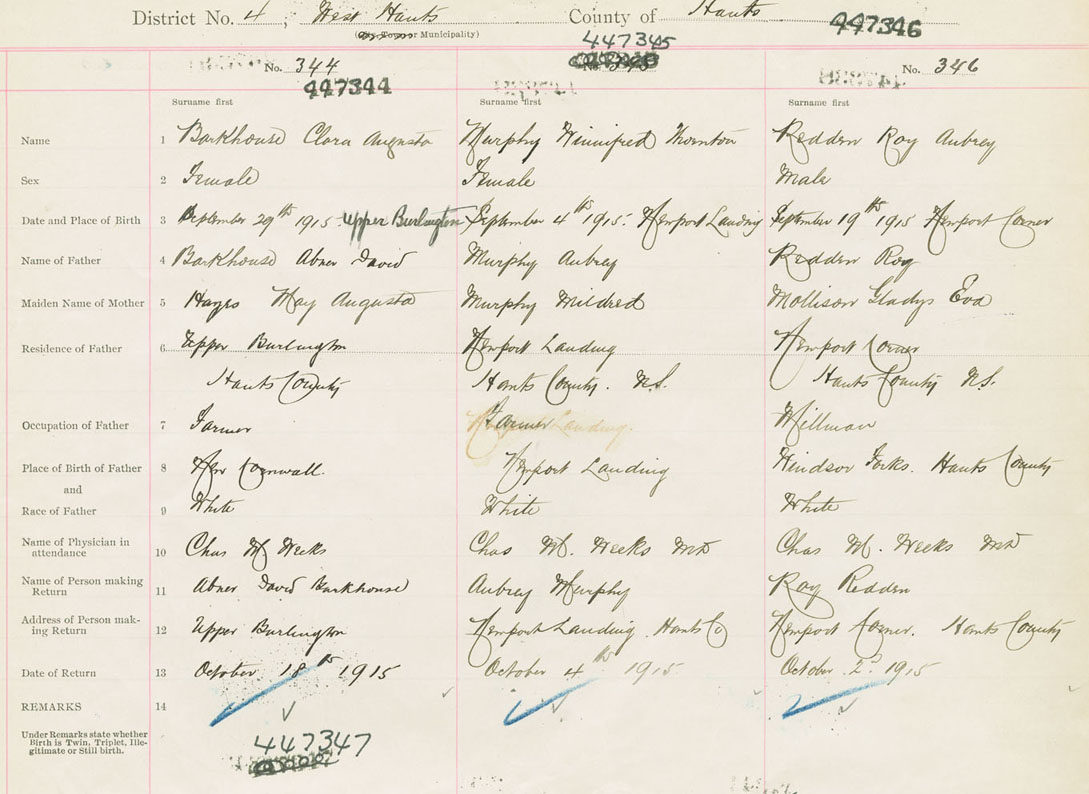 District No. 4, West Hants County of Hants 447346
(City, Town or Municipality)
447345
No. 344 No. 345 No. 346
447344
Surname first Surname first Surname first
Name 1 Barkhouse Clara Augusta Murphy Winnifred Thornton Redden Roy Aubrey
Sex 2 Female Female Male
Date and Place of Birth 3 September 29th 1915. Upper Burlington September 4th 1915. Newport Landing September 19th 1915 Newport Corner
Name of Father 4 Barkhouse Abner David Murphy Aubrey Redden Roy
Maiden Name of Mother 5 Hayes May Augusta Murphy Mildred Mollison Gladys Eva
Residence of Father 6 Upper Burlington Newport Landing Newport Corner
Hants County Hants County. N.S. Hants County N.S.
Occupation of Father 7 Farmer Farmer Millman
Place of Birth of Father 8 New Cornwall. Newport Landing Windsor Forks. Hants County
and
Race of Father 9 White White White
Name of Physician in
attendance 10 Chas M Weeks Chas M. Weeks MD Chas M. Weeks MD
Name of Person making
Return 11 Abner David Barkhouse Aubrey Murphy Roy Redden
Address of Person mak-
ing Return 12 Upper Burlington Newport Landing. Hants Co Newport Corner. Hants County
Date of Return 13 October 18th 1915 October 4th 1915 October 2d 1915
REMARKS 14
Under Remarks state whether
Birth is Twin, Triplet, Ille-
gitimate or Still birth.
447347